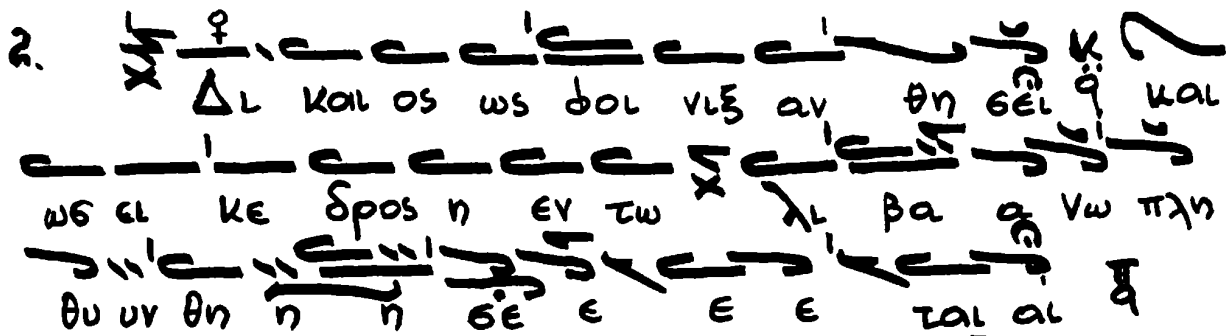 2. Δι και ος ως φοι νιξ αν θη σει και
ωσ ει κε δρος η εν τω λι βα α νω πλη
θυ υν θη η η σε ε ε ε ται αι